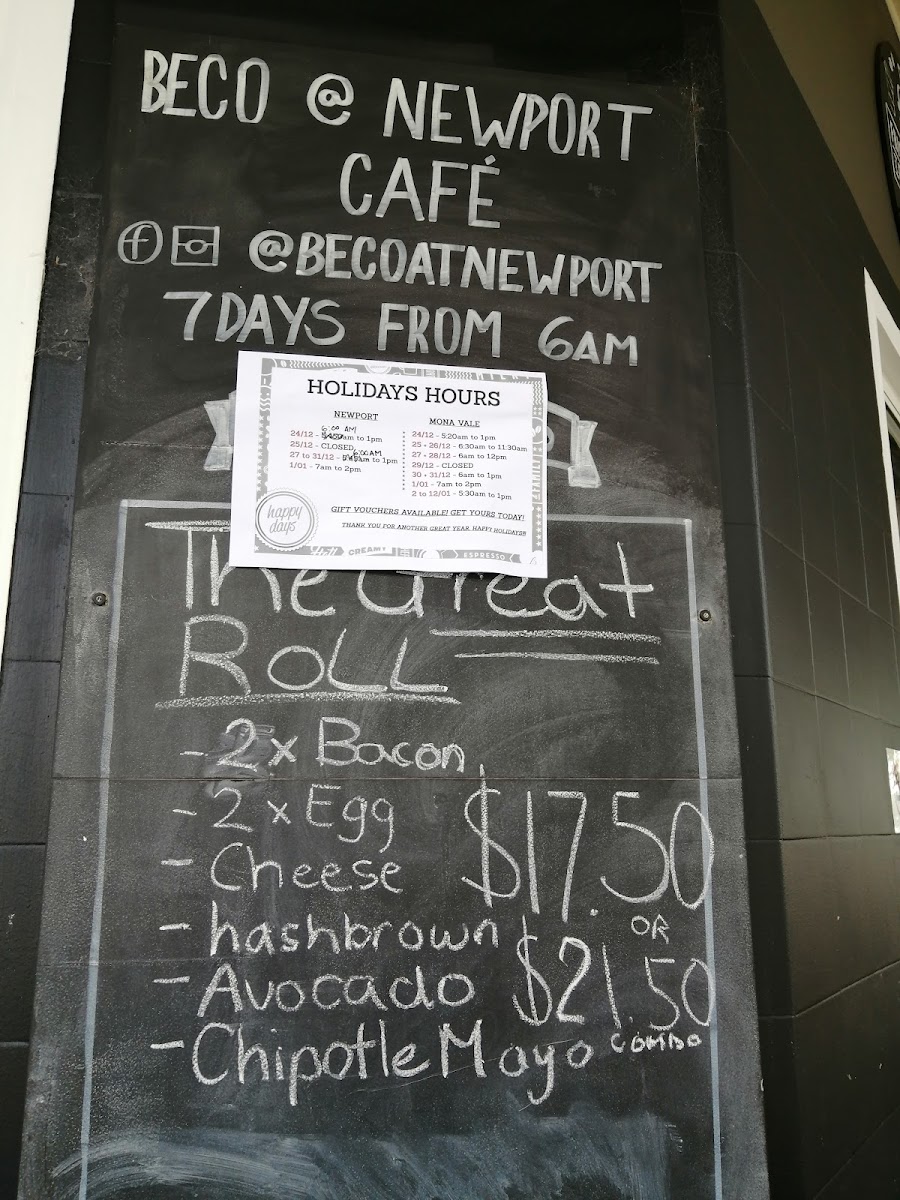 BECO @ NEWPORT
CAFÉ
@BECOATNEWPORT
7DAYS FROM 6AM
HOLIDAYS HOURS
NEWPORT
6:00 AM
24/12 - am to 1pm
25/12 - CLOSED
6:00AM
27 to 31/12 - am to 1pm
1/01 - 7am to 2pm
MONA VALE
24/12 - 5:20am to 1pm
25 + 26/12 - 6:30am to 11:30am
27 + 28/12 - 6am to 12pm
29/12 - CLOSED
30 + 31/12 - 6am to 1pm
1/01 - 7am to 2pm
2 to 12/01 - 5:30am to 1pm
happy
days
GIFT VOUCHERS AVAILABLE! GET YOURS TODAY!
THANK YOU FOR ANOTHER GREAT YEAR. HAPPY HOLIDAYS!!
CREAMY
ESPRESSO
The Great
Roll
- 2 x Bacon
- 2 x Egg
- Cheese
$17.50
- hashbrown
OR
- Avocado
$21.50
- Chipotle Mayo
COMBO